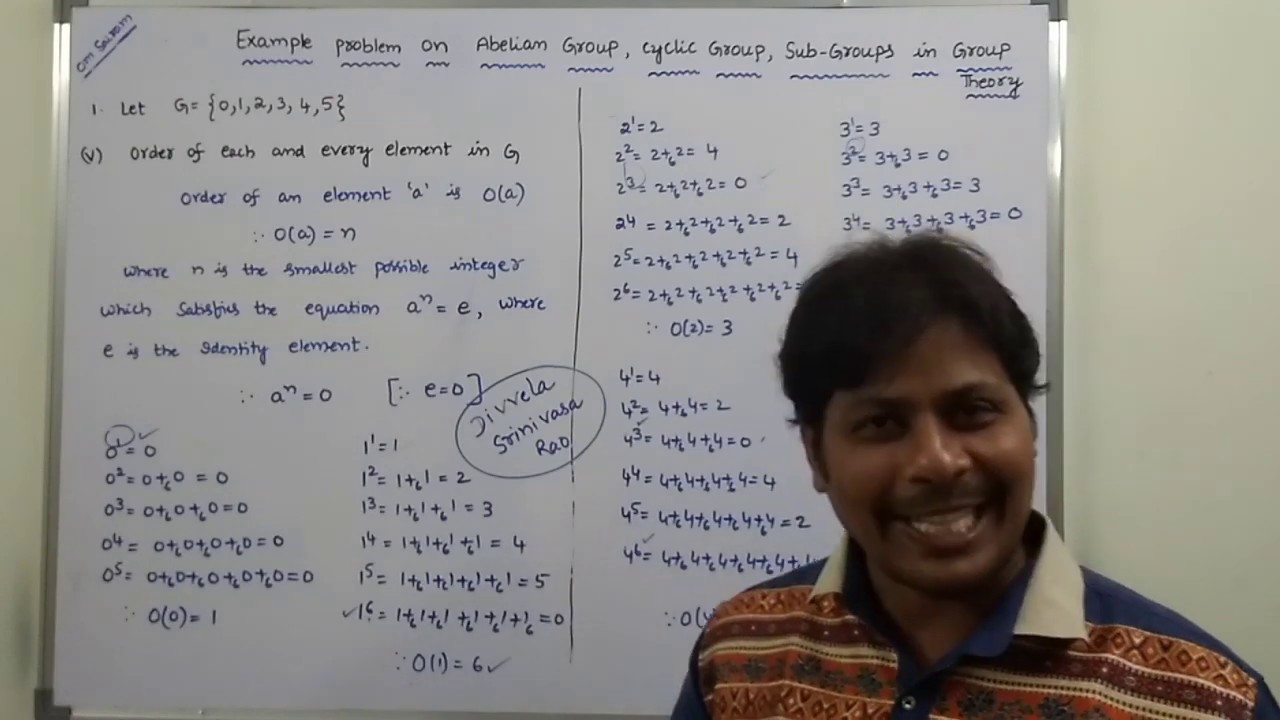 Om Sairam
Example problem on Abelian Group, cyclic Group, Sub-Groups in Group
Theory
1. Let G = {0,1,2,3,4,5}
(v) Order of each and every element in G
Order of an element 'a' is O(a)
∵ O(a) = n
where n is the smallest possible integer
which satisfies the equation aⁿ = e, where
e is the Identity element.
∴ aⁿ = 0 [∵ e=0]
Divvela
Srinivasa
Rao
0¹ = 0
0² = 0+₆0 = 0
0³ = 0+₆0+₆0 = 0
0⁴ = 0+₆0+₆0+₆0 = 0
0⁵ = 0+₆0+₆0+₆0+₆0 = 0
∵ O(0) = 1
1¹ = 1
1² = 1+₆1 = 2
1³ = 1+₆1+₆1 = 3
1⁴ = 1+₆1+₆1+₆1 = 4
1⁵ = 1+₆1+₆1+₆1+₆1 = 5
1⁶ = 1+₆1+₆1+₆1+₆1+₆1 = 0
∵ O(1) = 6
2¹ = 2
2² = 2+₆2 = 4
2³ = 2+₆2+₆2 = 0
2⁴ = 2+₆2+₆2+₆2 = 2
2⁵ = 2+₆2+₆2+₆2+₆2 = 4
2⁶ = 2+₆2+₆2+₆2+₆2+₆2 =
∵ O(2) = 3
3¹ = 3
3² = 3+₆3 = 0
3³ = 3+₆3+₆3 = 3
3⁴ = 3+₆3+₆3+₆3 = 0
4¹ = 4
4² = 4+₆4 = 2
4³ = 4+₆4+₆4 = 0
4⁴ = 4+₆4+₆4+₆4 = 4
4⁵ = 4+₆4+₆4+₆4+₆4 = 2
4⁶ = 4+₆4+₆4+₆4+₆4+₆